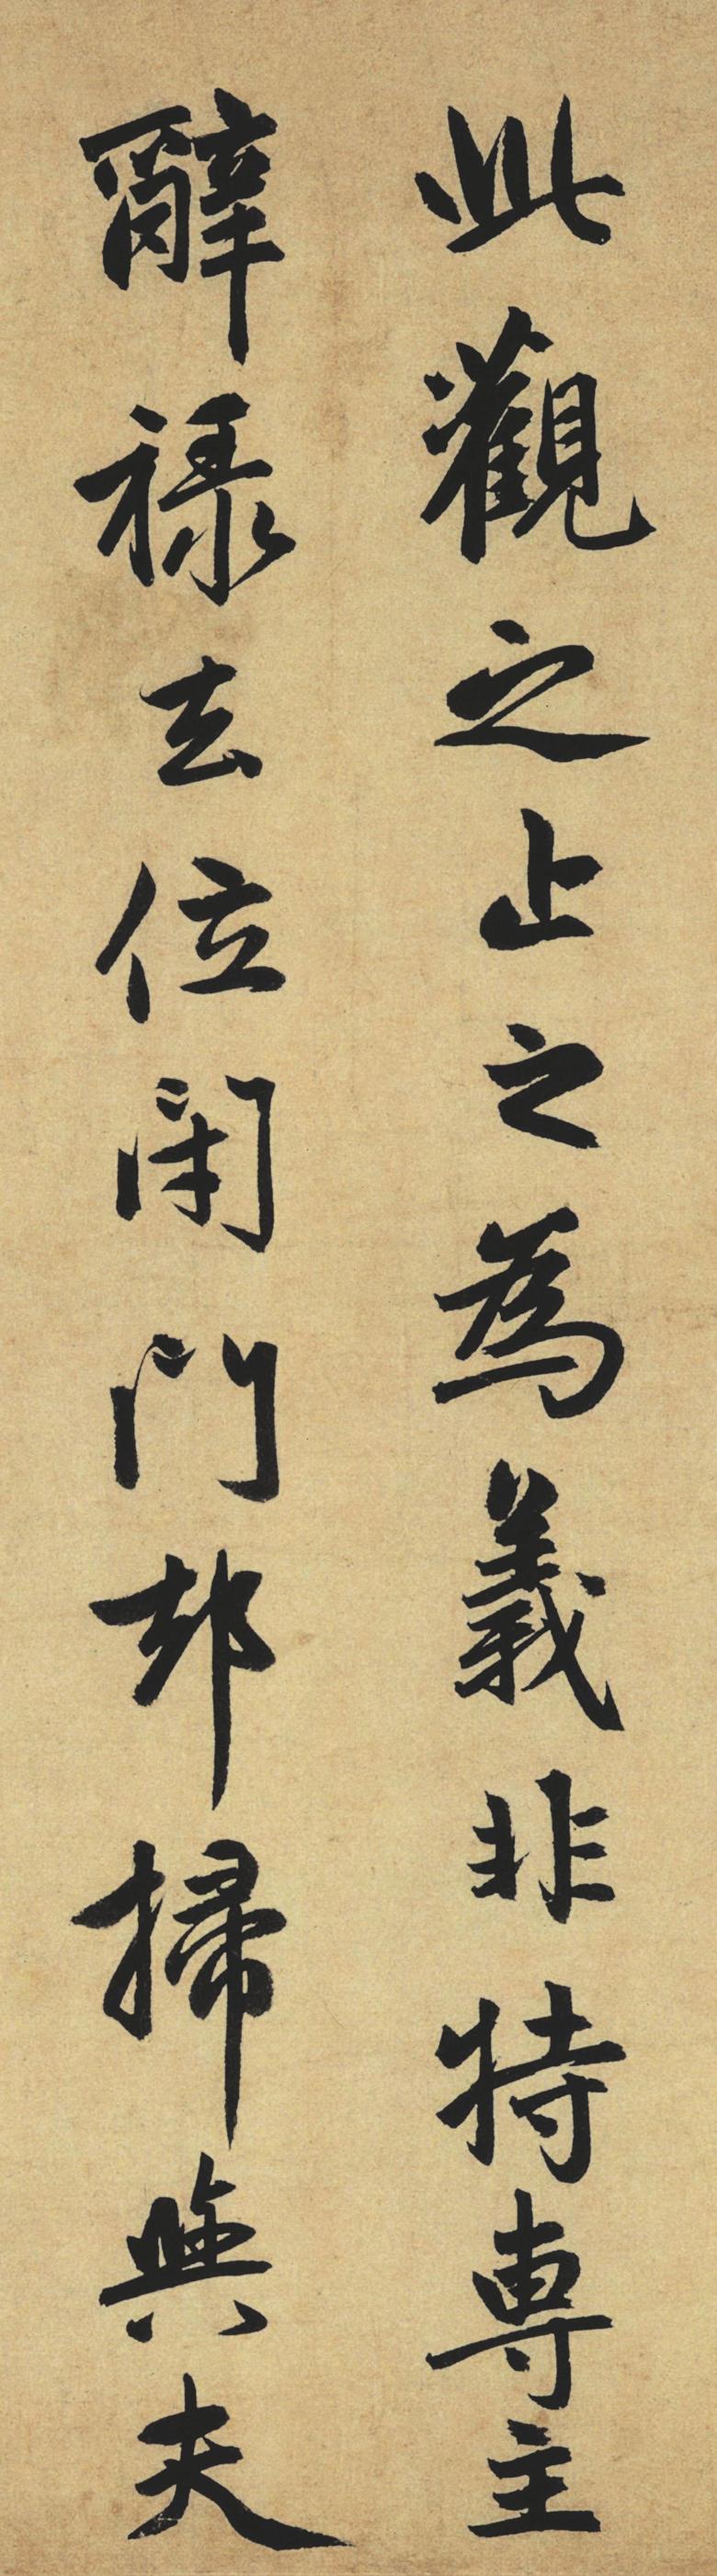 此觀之止之為義非特專主
辭祿去位閑門却掃與夫